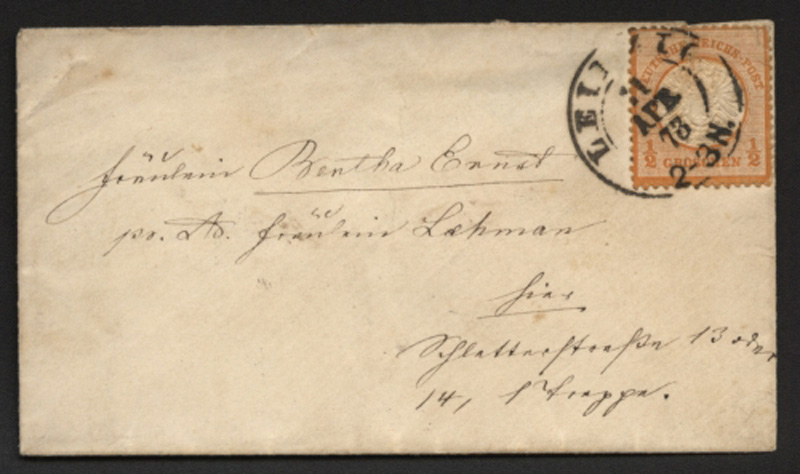 LEIPZIG
11
APR
73
2-3N.
DEUTSCHE REICHS-POST
1/2 GROSCHEN 1/2
Fräulein Bertha Ernst
pr. Ad. Fräulein Lehman
hier
Schletterstraße 13 oder
14, 1 Treppe.